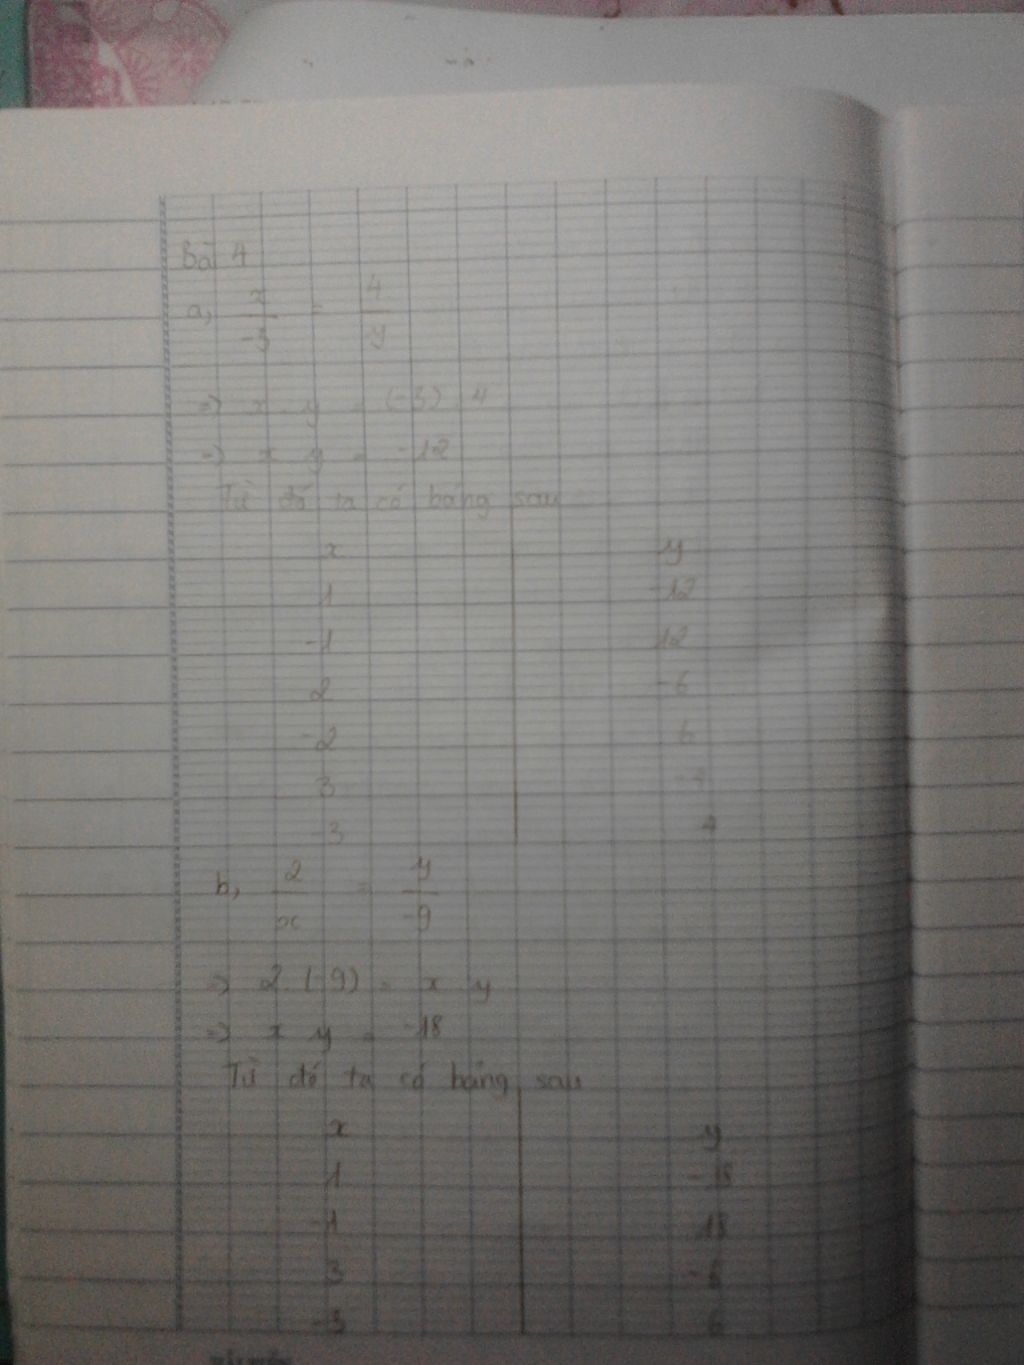 Bài 4
a, x/-3 = 4/y
=> x . y = (-3) . 4
=> x . y = -12
Từ đó ta có bảng sau
x y
1 -12
-1 12
2 -6
-2 6
3 -4
-3 4
b, 2/x = y/-9
=> 2 . (-9) = x . y
=> x . y = -18
Từ đó ta có bảng sau
x y
1 -18
-1 18
3 -6
-3 6